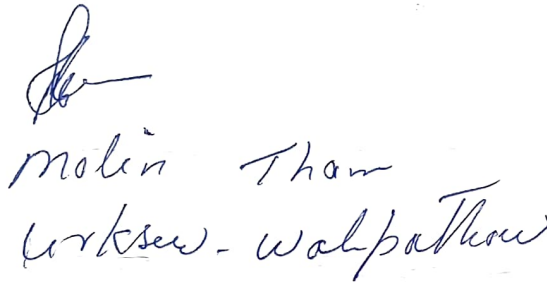 Molin Tham
Urksew - Wahpathaw